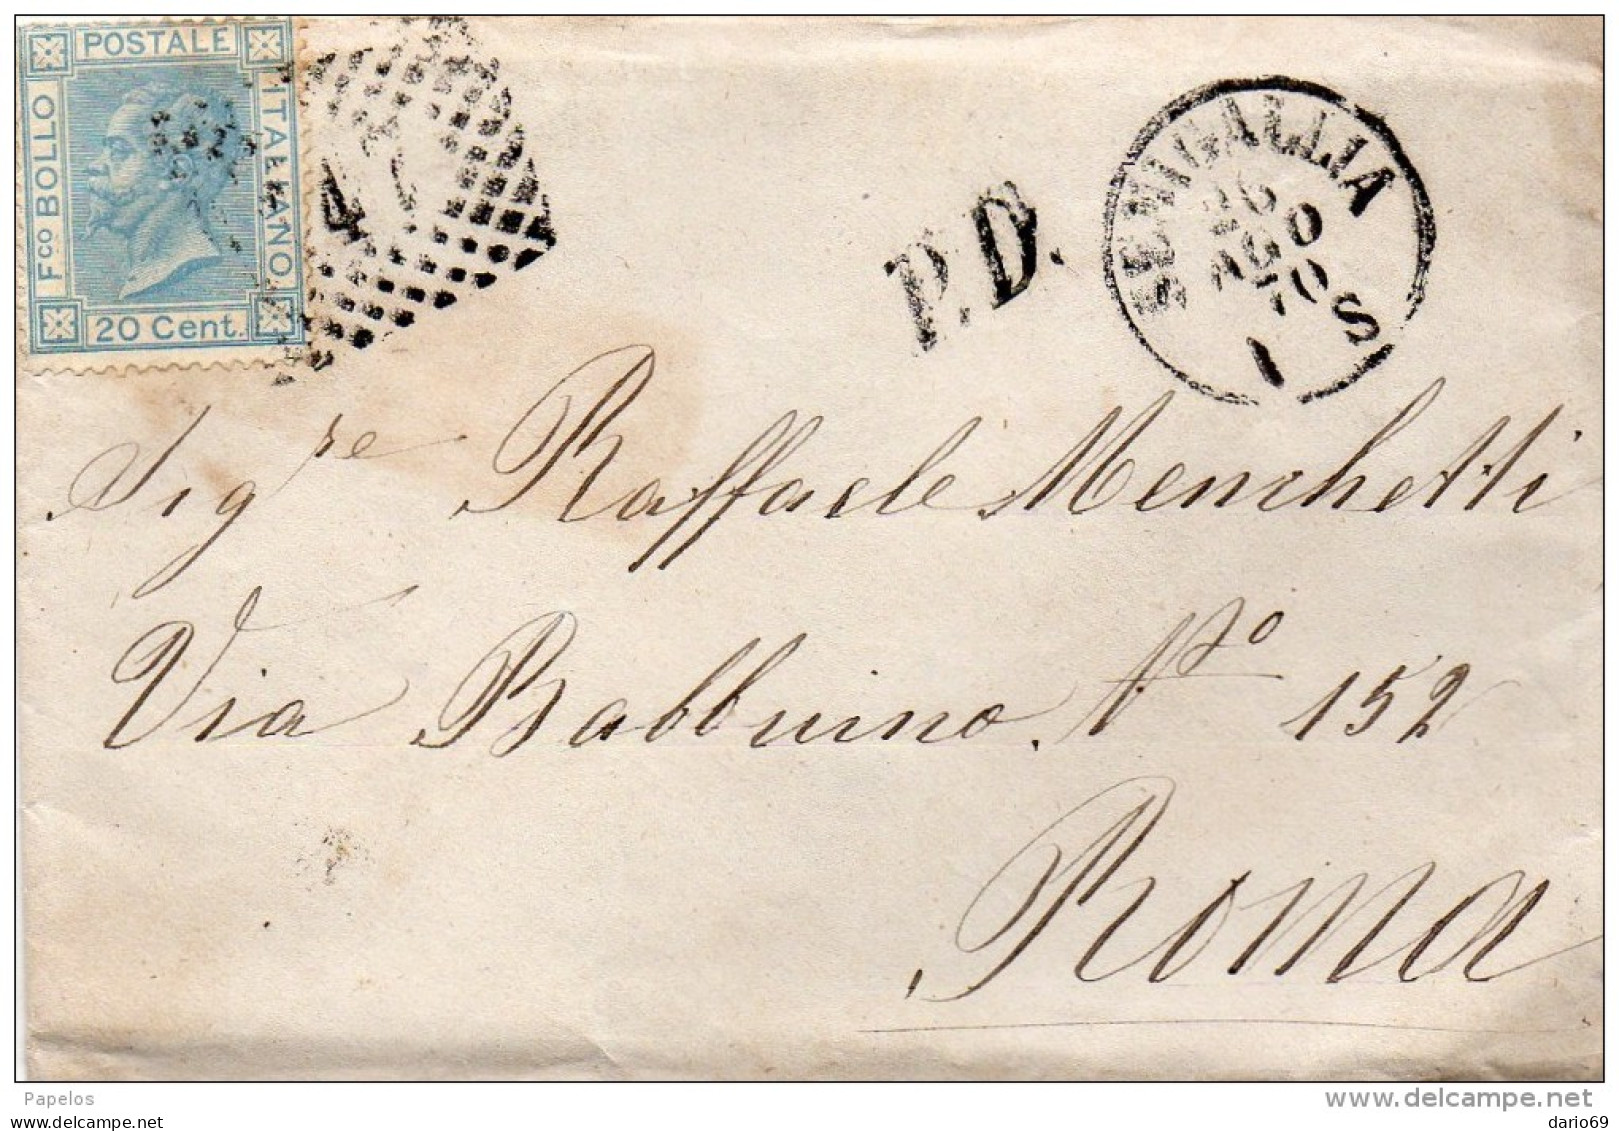 POSTALE
Fco BOLLO
ITALIANO
20 Cent.
P.D.
SENIGALLIA
26
AGO
70
1 S
Sigre Raffaele Menchetti
Via Babbuino. No 152
Roma
Papelos
www.delcampe.net
dario69